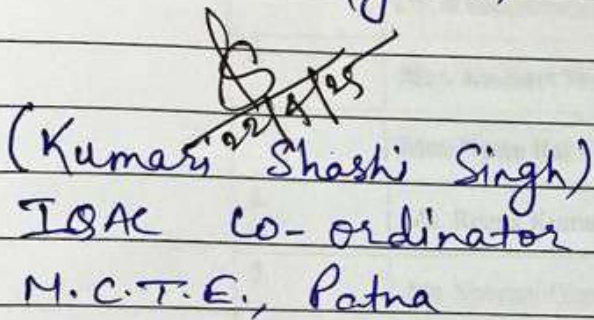 22/4/25
(Kumari Shashi Singh)
IQAC Co-ordinator
M.C.T.E., Patna